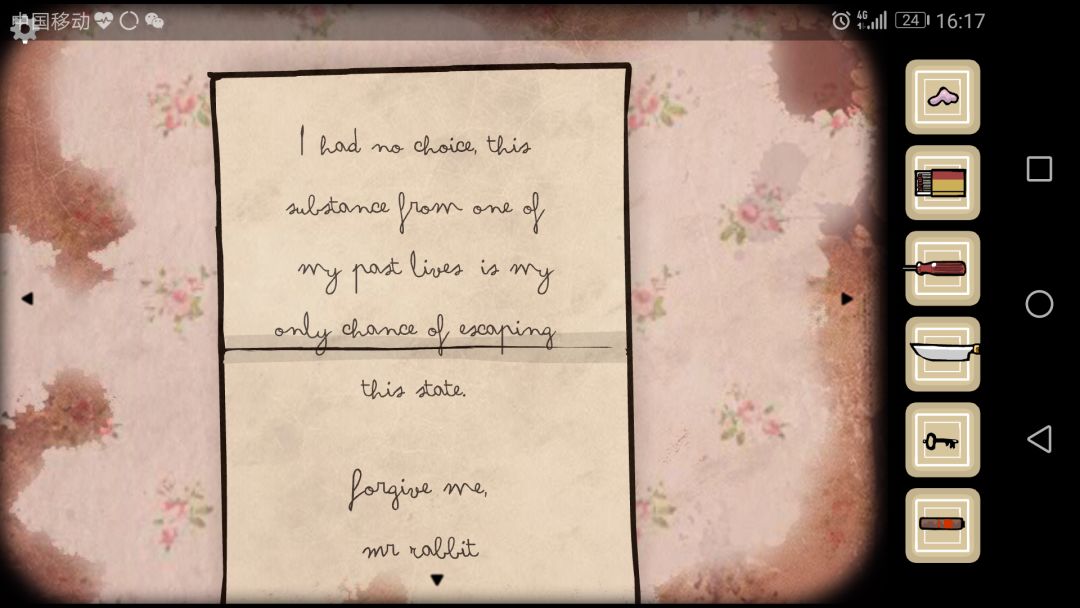 中国移动
4G
24
16:17
I had no choice, this
substance from one of
my past lives is my
only chance of escaping
this state.
forgive me,
mr rabbit